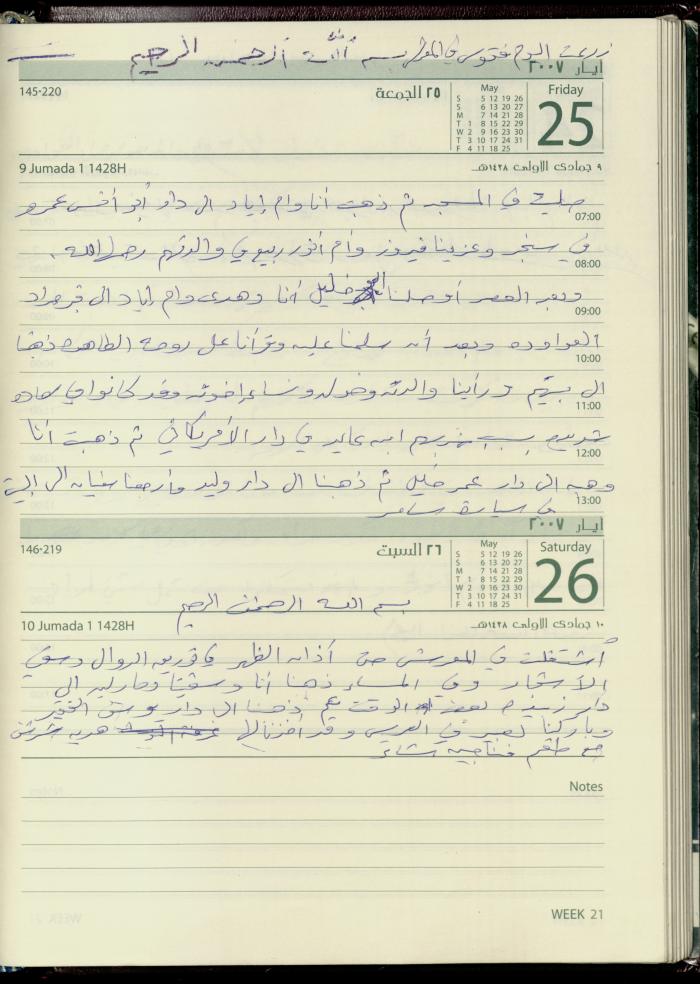 زرعت اليوم فقوس في المقـ بسم الله الرحمن الرحيم
أيـار ٢٠٠٧
145-220
٢٥ الجمعة
May
S 5 12 19 26
S 6 13 20 27
M 7 14 21 28
T 1 8 15 22 29
W 2 9 16 23 30
T 3 10 17 24 31
F 4 11 18 25
Friday
25
9 Jumada 1 1428H
٩ جمادى الأولى ١٤٢٨هـ
صليت في المسجد ثم ذهبت أنا وام إياد ال دار أبو أنس عمرو
07:00
في سنجر وعزينا فيروز وأم أنور ربيع في والدتهم رحمها الله .
08:00
وبعد العصر أوصلنا خليل أنا وهدى وام اياد ال قبر مراد
09:00
العواوده وبعد أن سلمنا عليه وقرأنا على روحه الطاهرة ذهبنا
10:00
ال بيتهم ورأينا والدته ونساء إخوته وقد كانوا في
11:00
ابن عايد في دار الأمريكاني ثم ذهبت أنا
12:00
وهبه إلى دار عمر خليل ثم ذهبنا ال دار وليد وأرجعنا سفيان الى البيت
13:00
في سيارة سامر
أيـار ٢٠٠٧
146-219
٢٦ السبت
May
S 5 12 19 26
S 6 13 20 27
M 7 14 21 28
T 1 8 15 22 29
W 2 9 16 23 30
T 3 10 17 24 31
F 4 11 18 25
Saturday
26
بسم الله الرحمن الرحيم
10 Jumada 1 1428H
١٠ جمادى الأولى ١٤٢٨هـ
أشتغلت في المعرش حتى أذان الظهر في الدوال وسقي
الأشجار وفي المساء ذهبنا أنا وشقيقا ال
دار زبيده لبعض الوقت ثم ذهبنا ال دار
وباركنا في العرس وقد أخذنا لها هديه
مع طقم فناجين شاي
Notes
WEEK 21